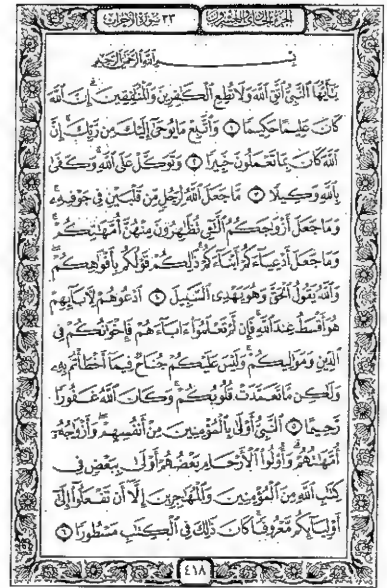 الجزء الحادي والعشرون ٣٣ سورة الأحزاب
بِسْمِ ٱللَّهِ ٱلرَّحْمَٰنِ ٱلرَّحِيمِ
يَٰٓأَيُّهَا ٱلنَّبِىُّ ٱتَّقِ ٱللَّهَ وَلَا تُطِعِ ٱلْكَٰفِرِينَ وَٱلْمُنَٰفِقِينَ ۗ إِنَّ ٱللَّهَ
كَانَ عَلِيمًا حَكِيمًا ١ وَٱتَّبِعْ مَا يُوحَىٰٓ إِلَيْكَ مِن رَّبِّكَ ۚ إِنَّ
ٱللَّهَ كَانَ بِمَا تَعْمَلُونَ خَبِيرًا ٢ وَتَوَكَّلْ عَلَى ٱللَّهِ ۚ وَكَفَىٰ
بِٱللَّهِ وَكِيلًا ٣ مَّا جَعَلَ ٱللَّهُ لِرَجُلٍ مِّن قَلْبَيْنِ فِى جَوْفِهِۦ ۚ
وَمَا جَعَلَ أَزْوَٰجَكُمُ ٱلَّٰٓـِٔى تُظَٰهِرُونَ مِنْهُنَّ أُمَّهَٰتِكُمْ ۚ
وَمَا جَعَلَ أَدْعِيَآءَكُمْ أَبْنَآءَكُمْ ۚ ذَٰلِكُمْ قَوْلُكُم بِأَفْوَٰهِكُمْ ۖ
وَٱللَّهُ يَقُولُ ٱلْحَقَّ وَهُوَ يَهْدِى ٱلسَّبِيلَ ٤ ٱدْعُوهُمْ لِءَابَآئِهِمْ
هُوَ أَقْسَطُ عِندَ ٱللَّهِ ۚ فَإِن لَّمْ تَعْلَمُوٓا۟ ءَابَآءَهُمْ فَإِخْوَٰنُكُمْ فِى
ٱلدِّينِ وَمَوَٰلِيكُمْ ۚ وَلَيْسَ عَلَيْكُمْ جُنَاحٌ فِيمَآ أَخْطَأْتُم بِهِۦ
وَلَٰكِن مَّا تَعَمَّدَتْ قُلُوبُكُمْ ۚ وَكَانَ ٱللَّهُ غَفُورًا
رَّحِيمًا ٥ ٱلنَّبِىُّ أَوْلَىٰ بِٱلْمُؤْمِنِينَ مِنْ أَنفُسِهِمْ ۖ وَأَزْوَٰجُهُۥٓ
أُمَّهَٰتُهُمْ ۗ وَأُو۟لُوا۟ ٱلْأَرْحَامِ بَعْضُهُمْ أَوْلَىٰ بِبَعْضٍ فِى
كِتَٰبِ ٱللَّهِ مِنَ ٱلْمُؤْمِنِينَ وَٱلْمُهَٰجِرِينَ إِلَّآ أَن تَفْعَلُوٓا۟ إِلَىٰٓ
أَوْلِيَآئِكُم مَّعْرُوفًا ۚ كَانَ ذَٰلِكَ فِى ٱلْكِتَٰبِ مَسْطُورًا ٦
٤١٨